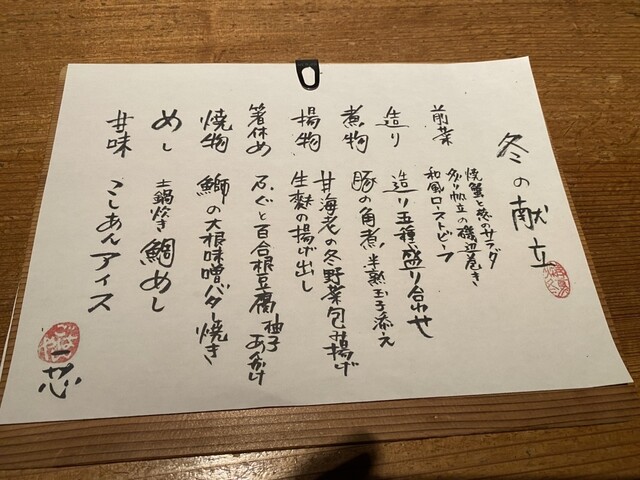 冬の献立
前菜
焼蟹と葱のサラダ
炙り帆立の磯辺巻き
和風ローストビーフ
造り
造り五種盛り合わせ
煮物
豚の角煮 半熟玉子添え
揚物
甘海老の冬野菜包み揚げ
生麩の揚げ出し
箸休め
ふぐと百合根豆腐 柚子あんかけ
焼物
鰤の大根味噌バター焼き
めし
土鍋炊き 鯛めし
甘味
こしあんアイス
ごはんや
一芯